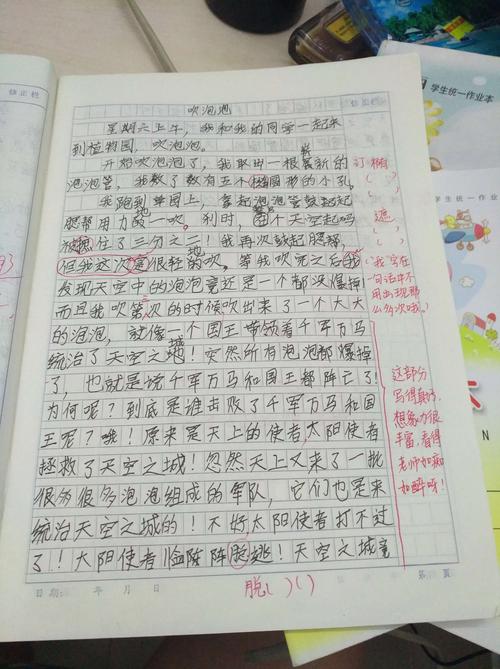 学生统一作业本
修正栏
修正栏
吹泡泡
星期六上午，我和我的同学一起来
到植物园，吹泡泡。
开始吹泡泡了，我取出一根最新的
泡泡管，我数了数有五个椭圆形的小孔。
订 椭
( ) ( )
我跑到草图上，拿起泡泡管鼓起
腮帮用力地一吹。利时，整个天空起码
被 住了三分之二！我再次鼓起腮帮，
遮
( )
但我这次 很轻的吹。等我吹完之后我
发现天空中的泡泡竟还是一个都没爆掉
而且我吹第 次的时候吹出来了一个大大
(我字在
一句话中不
用出现那
么多次哦。)
的泡泡，就像一个国王带领着千军万马
统治了天空之城！突然所有泡泡都爆掉
了，也就是说千军万马和国王都阵亡了！
为何呢？到底是谁击败了千军万马和国
王呢？哦！原来是天上的使者，太阳使者
拯救了天空之城！忽然天上又来了一批
很多很多泡泡组成的军队，它们也是来
统治天空之城的！不好太阳使者打不过
了！太阳使者 临阵脱逃！天空之城竟
这部分
写得真好，
想象力很
丰富，看得
老师如痴
如醉呀！
日期： 年 月 日
第 页
脱( )( )
学生统一作业本
93